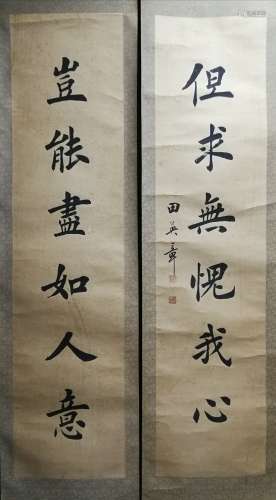 豈能盡如人意
但求無愧我心
田英章